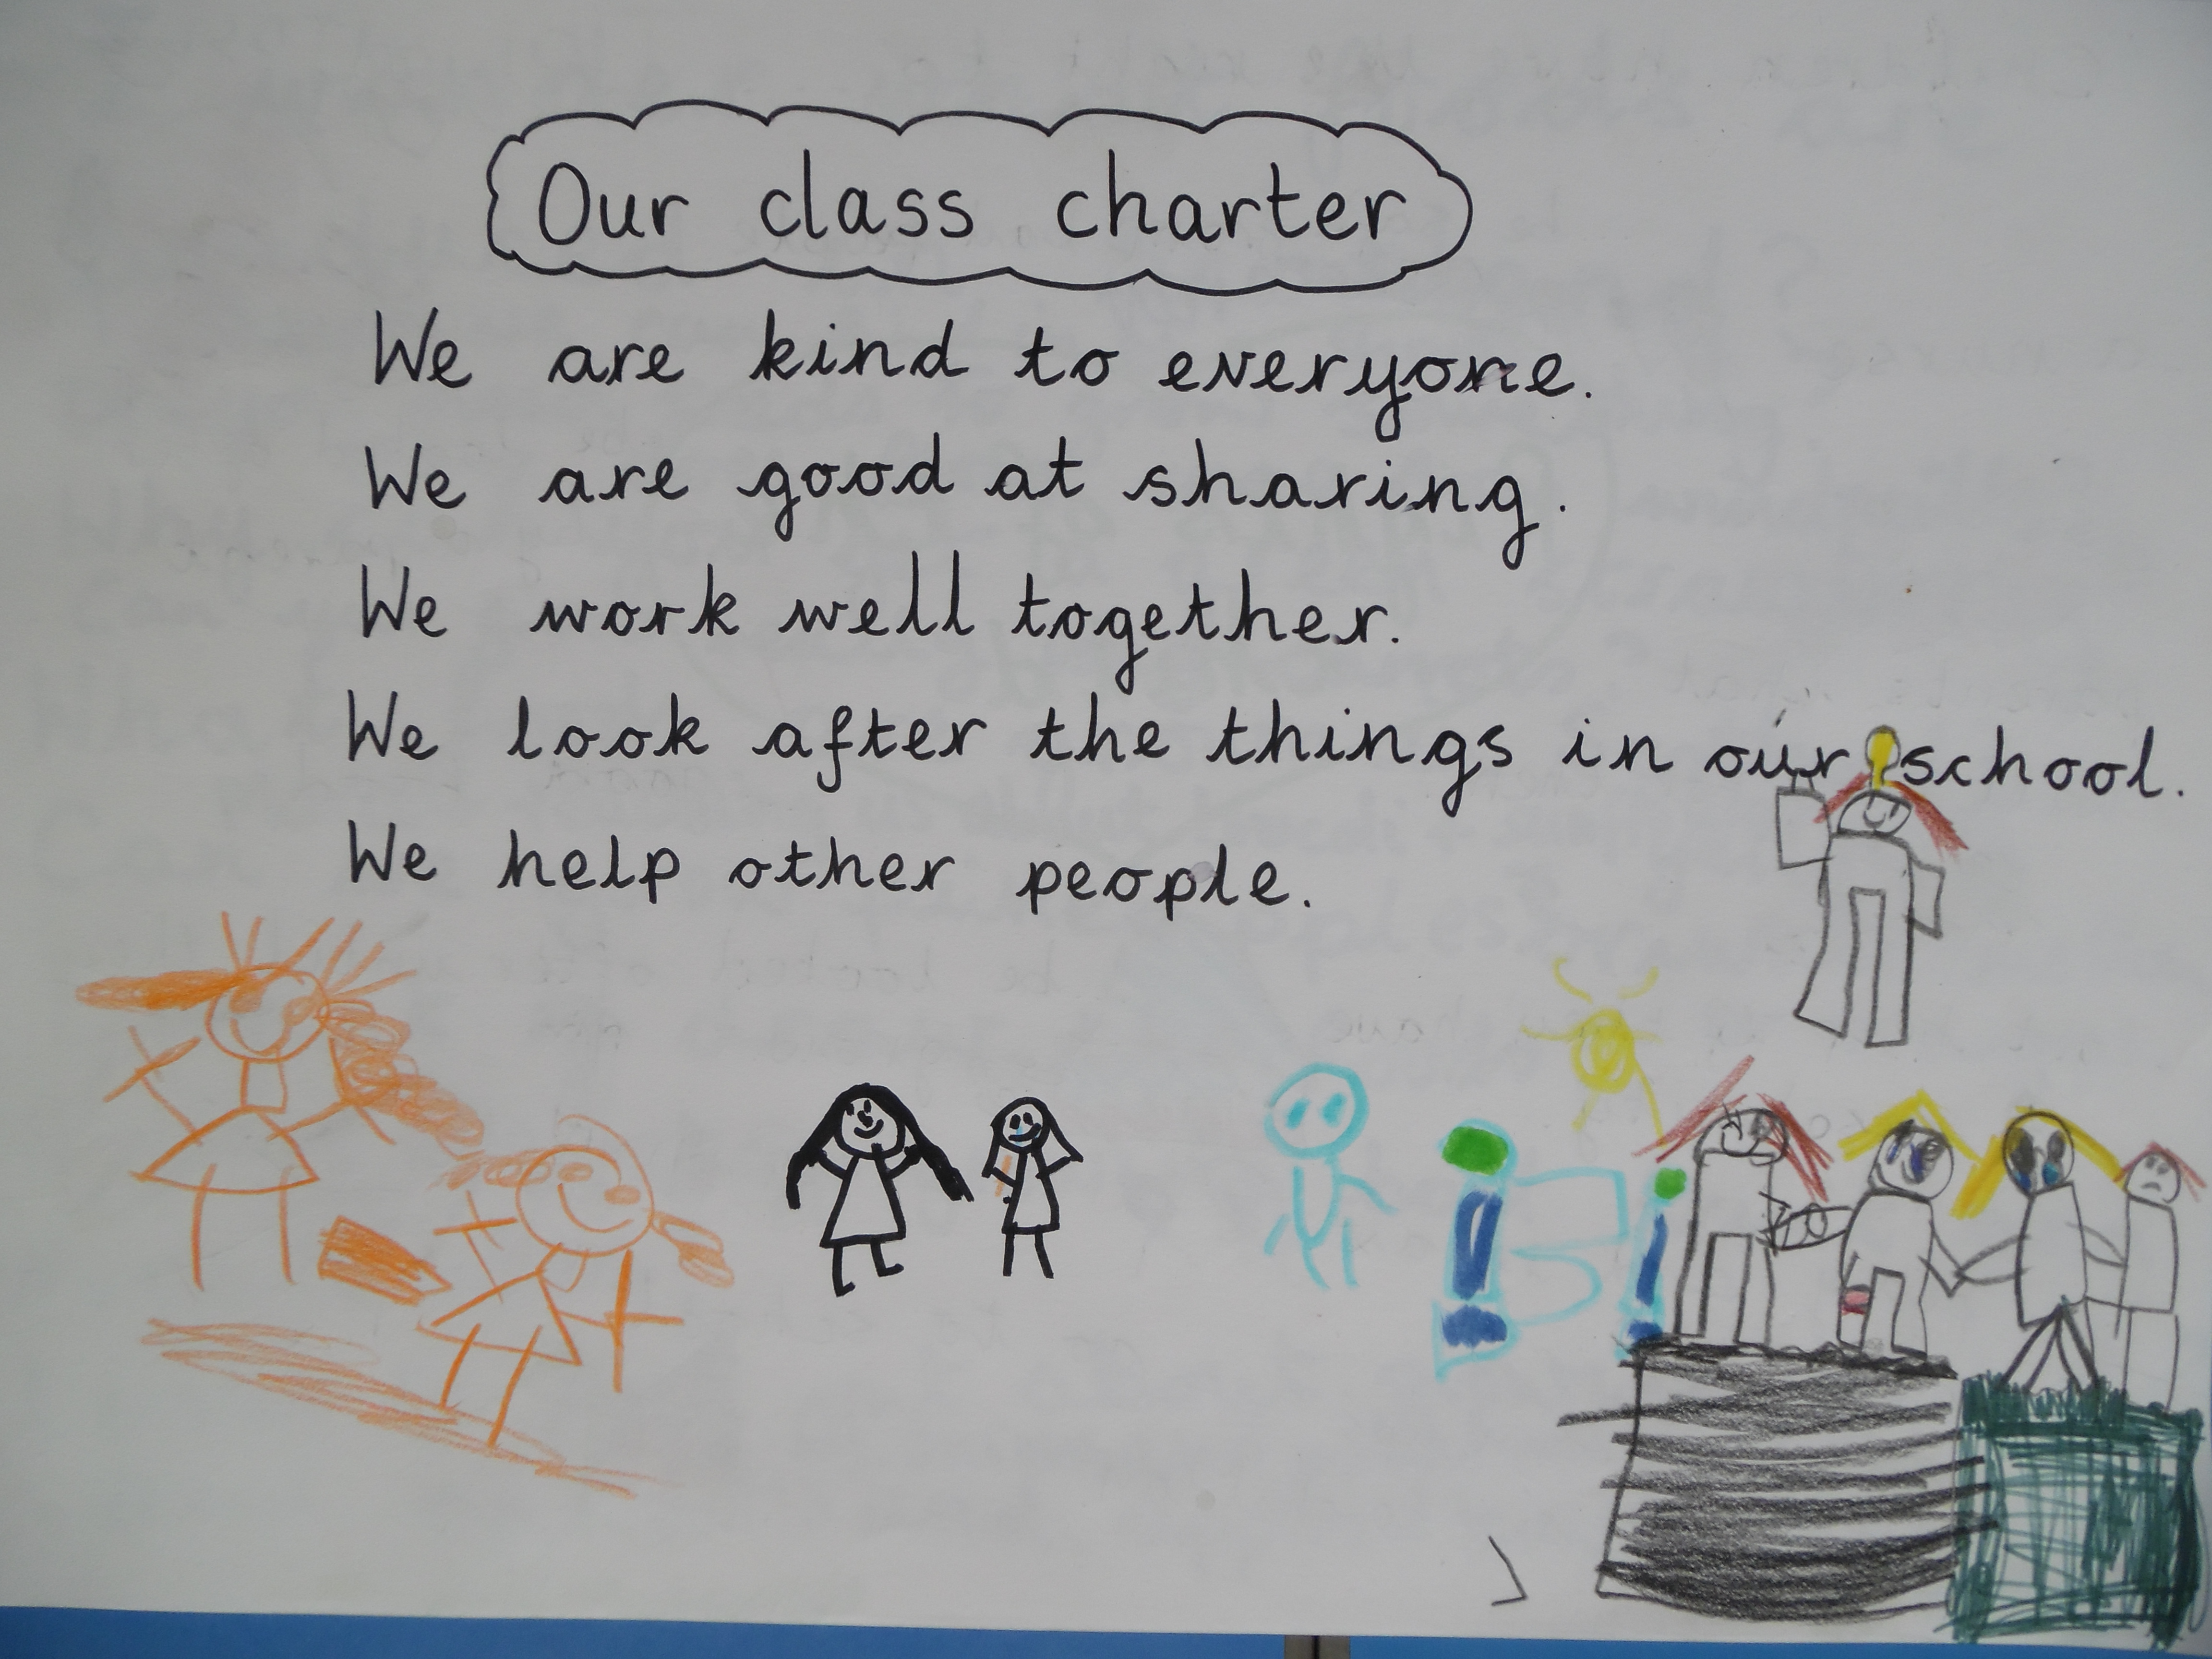 Our class charter
We are kind to everyone.
We are good at sharing.
We work well together.
We look after the things in our school.
We help other people.